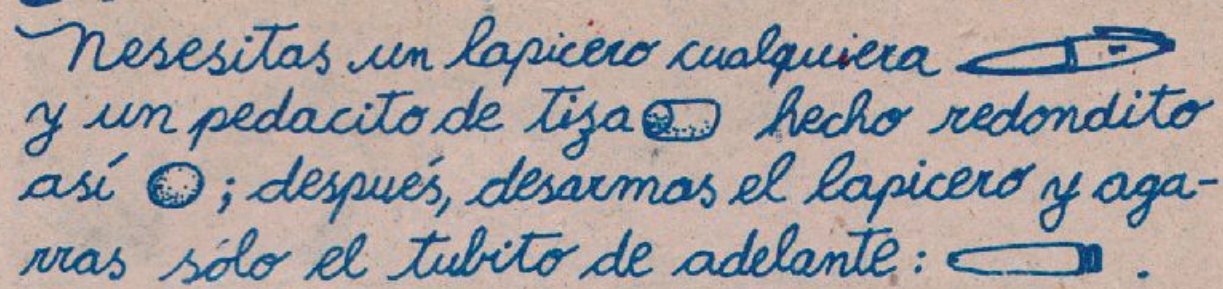 Nesesitas un lapicero cualquiera
y un pedacito de tiza hecho redondito
así ; después, desarmas el lapicero y aga-
rras sólo el tubito de adelante: .